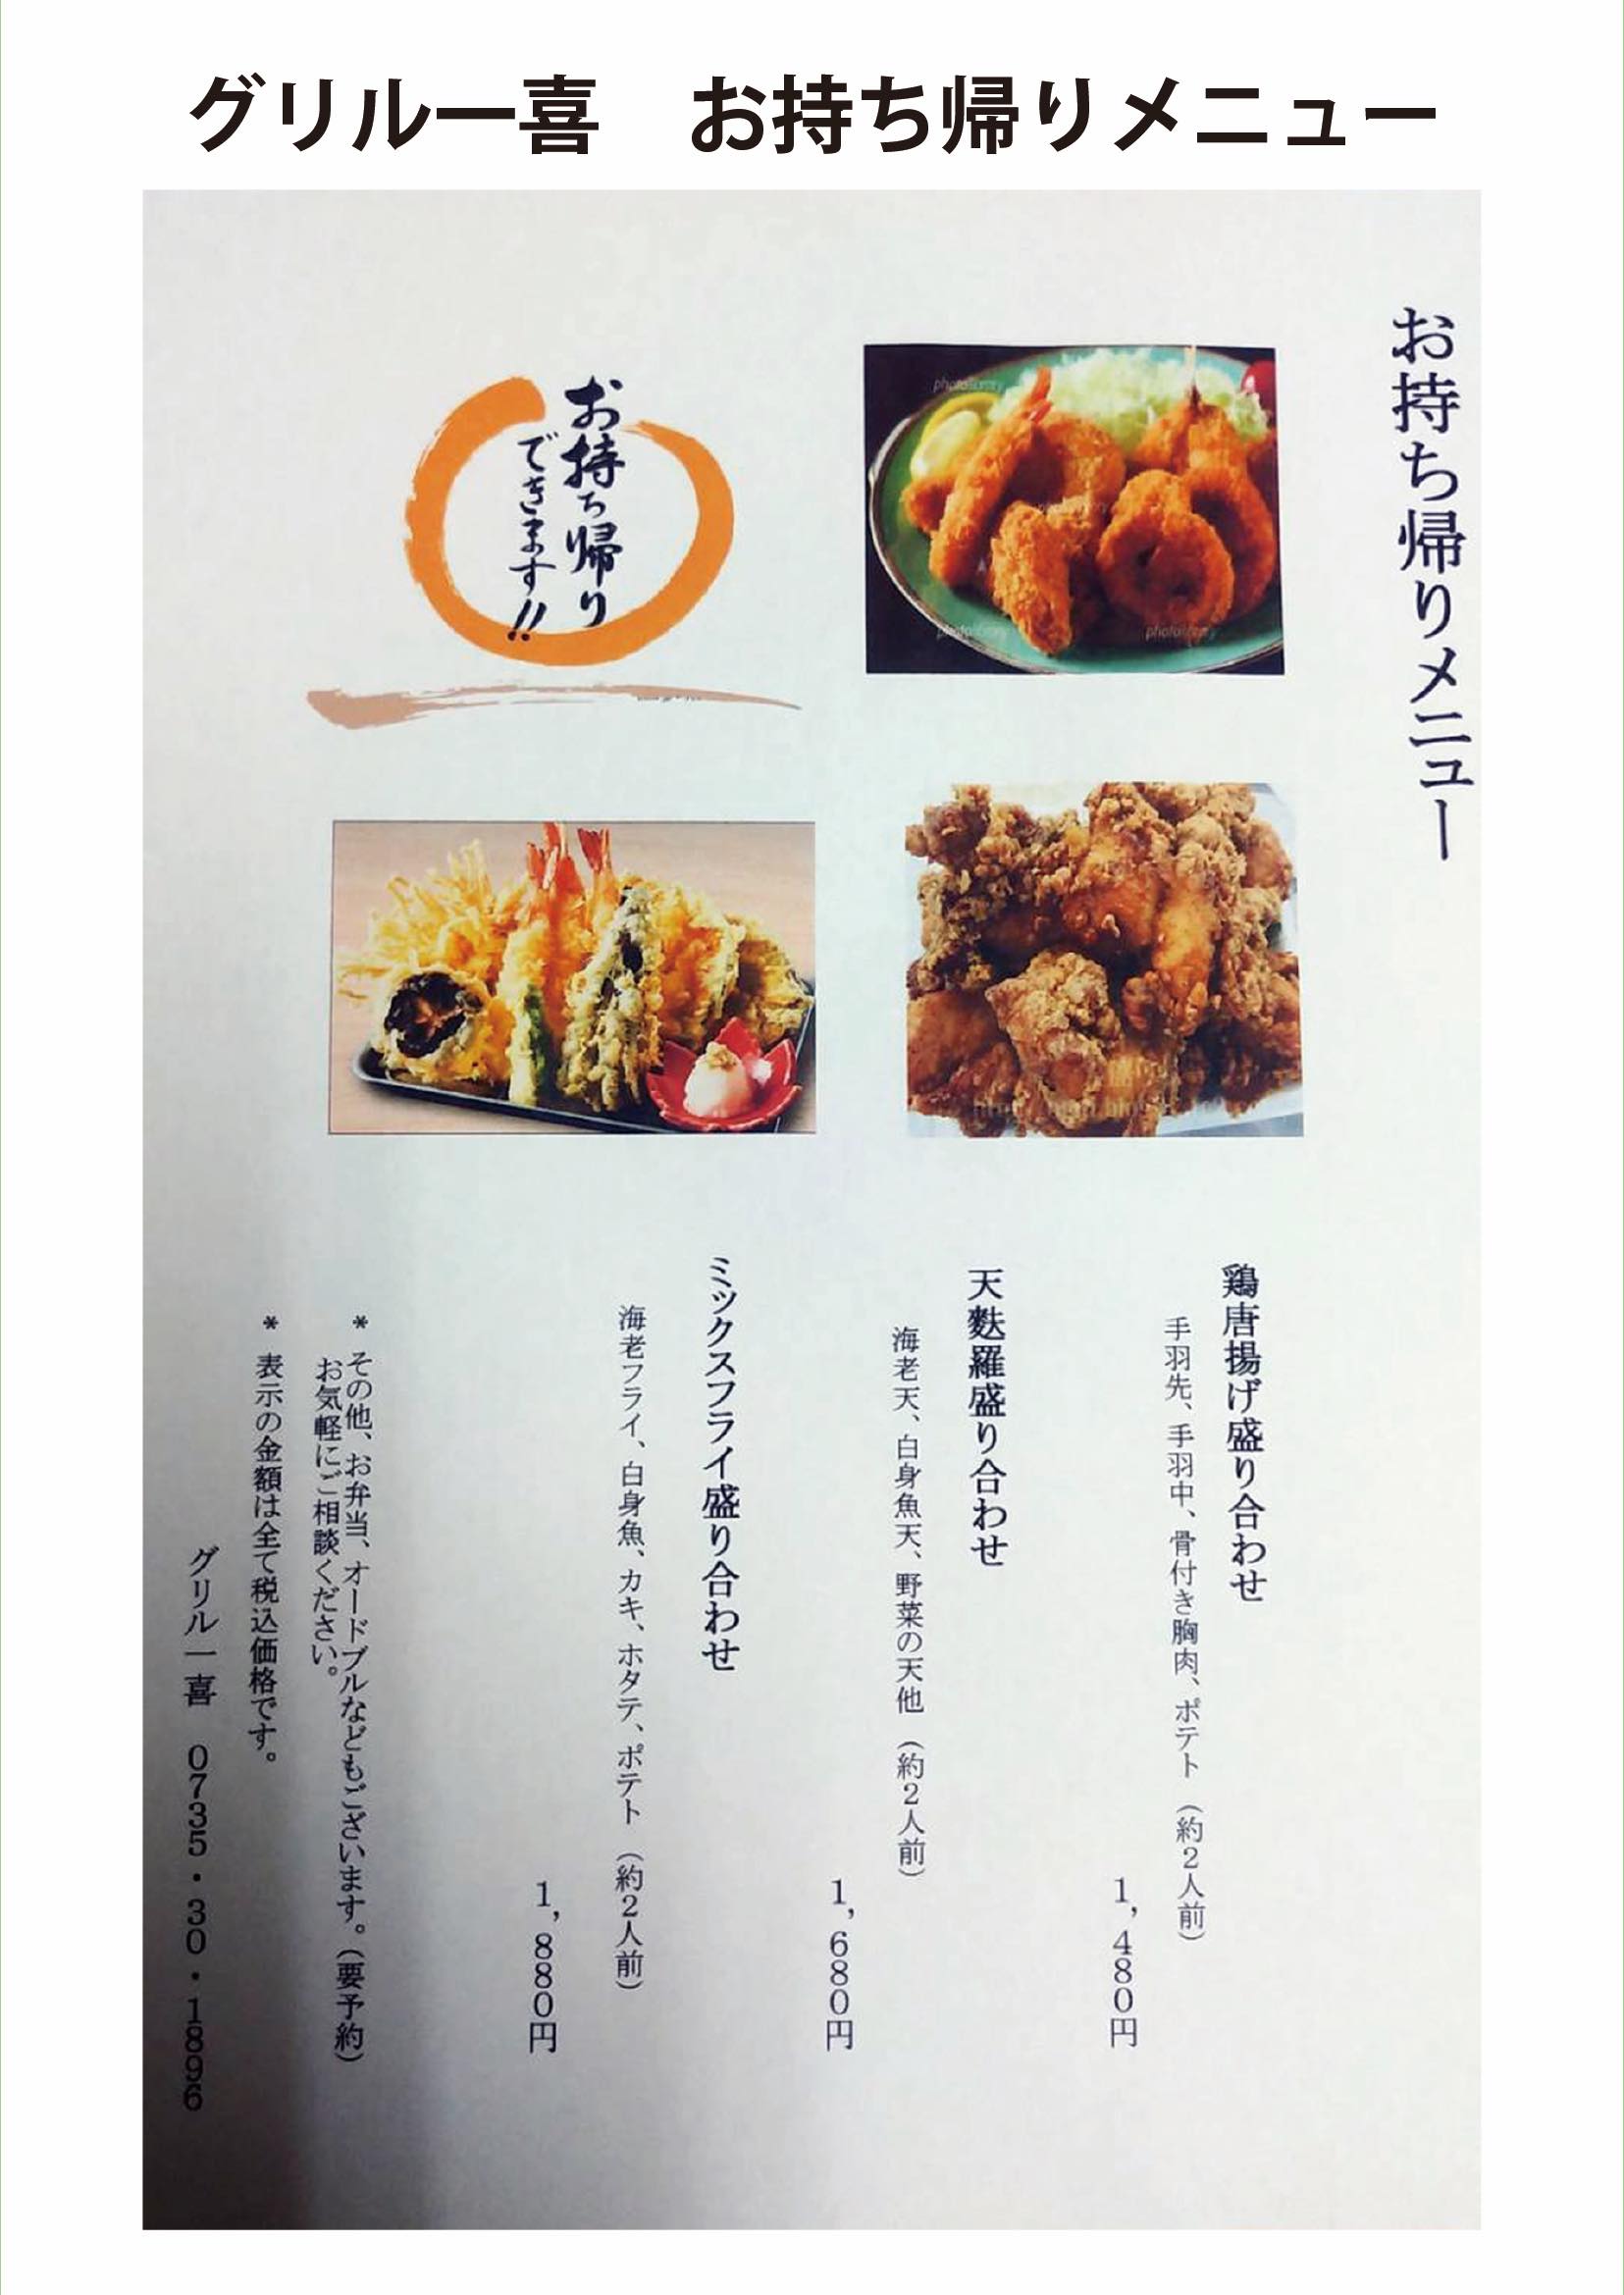 グリル一喜　お持ち帰りメニュー
お持ち帰りメニュー
お持ち帰り
できます!!
photolibrary
photolibrary
photolibrary
鶏唐揚げ盛り合わせ
手羽先、手羽中、骨付き胸肉、ポテト（約２人前）
１，４８０円
天麩羅盛り合わせ
海老天、白身魚天、野菜の天他（約２人前）
１，６８０円
ミックスフライ盛り合わせ
海老フライ、白身魚、カキ、ホタテ、ポテト（約２人前）
１，８８０円
＊その他、お弁当、オードブルなどもございます。（要予約）
お気軽にご相談ください。
＊表示の金額は全て税込価格です。
グリル一喜　０７３５・３０・１８９６